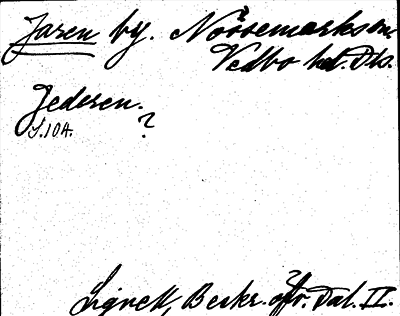 Jaren by. Nössemarks sn
Vedbo hd. Dls.
Jederen.
S. 104. ?
Lignell, Beskr. öfr. Dal. II.